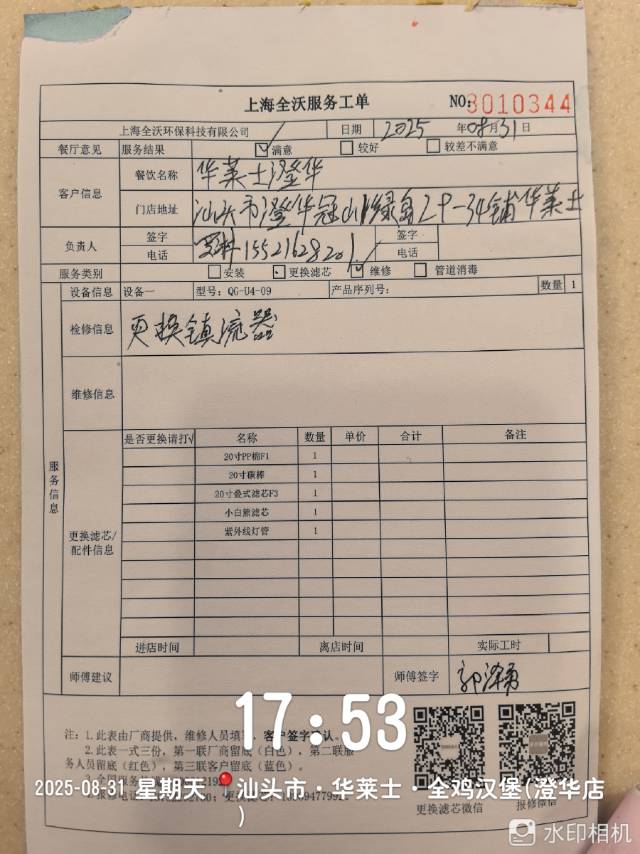 上海全沃服务工单 NO:3010344
上海全沃环保科技有限公司 日期 2025 年08月31日
餐厅意见 服务结果 满意 较好 较差不满意
客户信息 餐饮名称 华莱士澄华
门店地址 汕头市澄华冠山绿岛29-34铺华莱士
负责人 签字 电话 15521628201 签字 电话
服务类别 安装 更换滤芯 维修 管道消毒
设备信息 设备一 型号: QG-U4-09 产品序列号: 数量 1
检修信息 更换镇流器
维修信息
服务信息
更换滤芯/配件信息
是否更换请打√ 名称 数量 单价 合计 备注
20寸PP棉F1 1
20寸碳棒 1
20寸叠式滤芯F3 1
小白熊滤芯 1
紫外线灯管 1
进店时间 离店时间 实际工时
师傅建议 师傅签字 郭泽勇
17:53
注: 1.此表由厂商提供, 维修人员填写, 客户签字确认。
2.此表一式三份, 第一联厂商留底(白色), 第二联服
务人员留底(红色), 第三联客户留底(蓝色)。
2025-08-31 星期天 汕头市·华莱士·全鸡汉堡(澄华店
)
更换滤芯微信 报修微信
水印相机